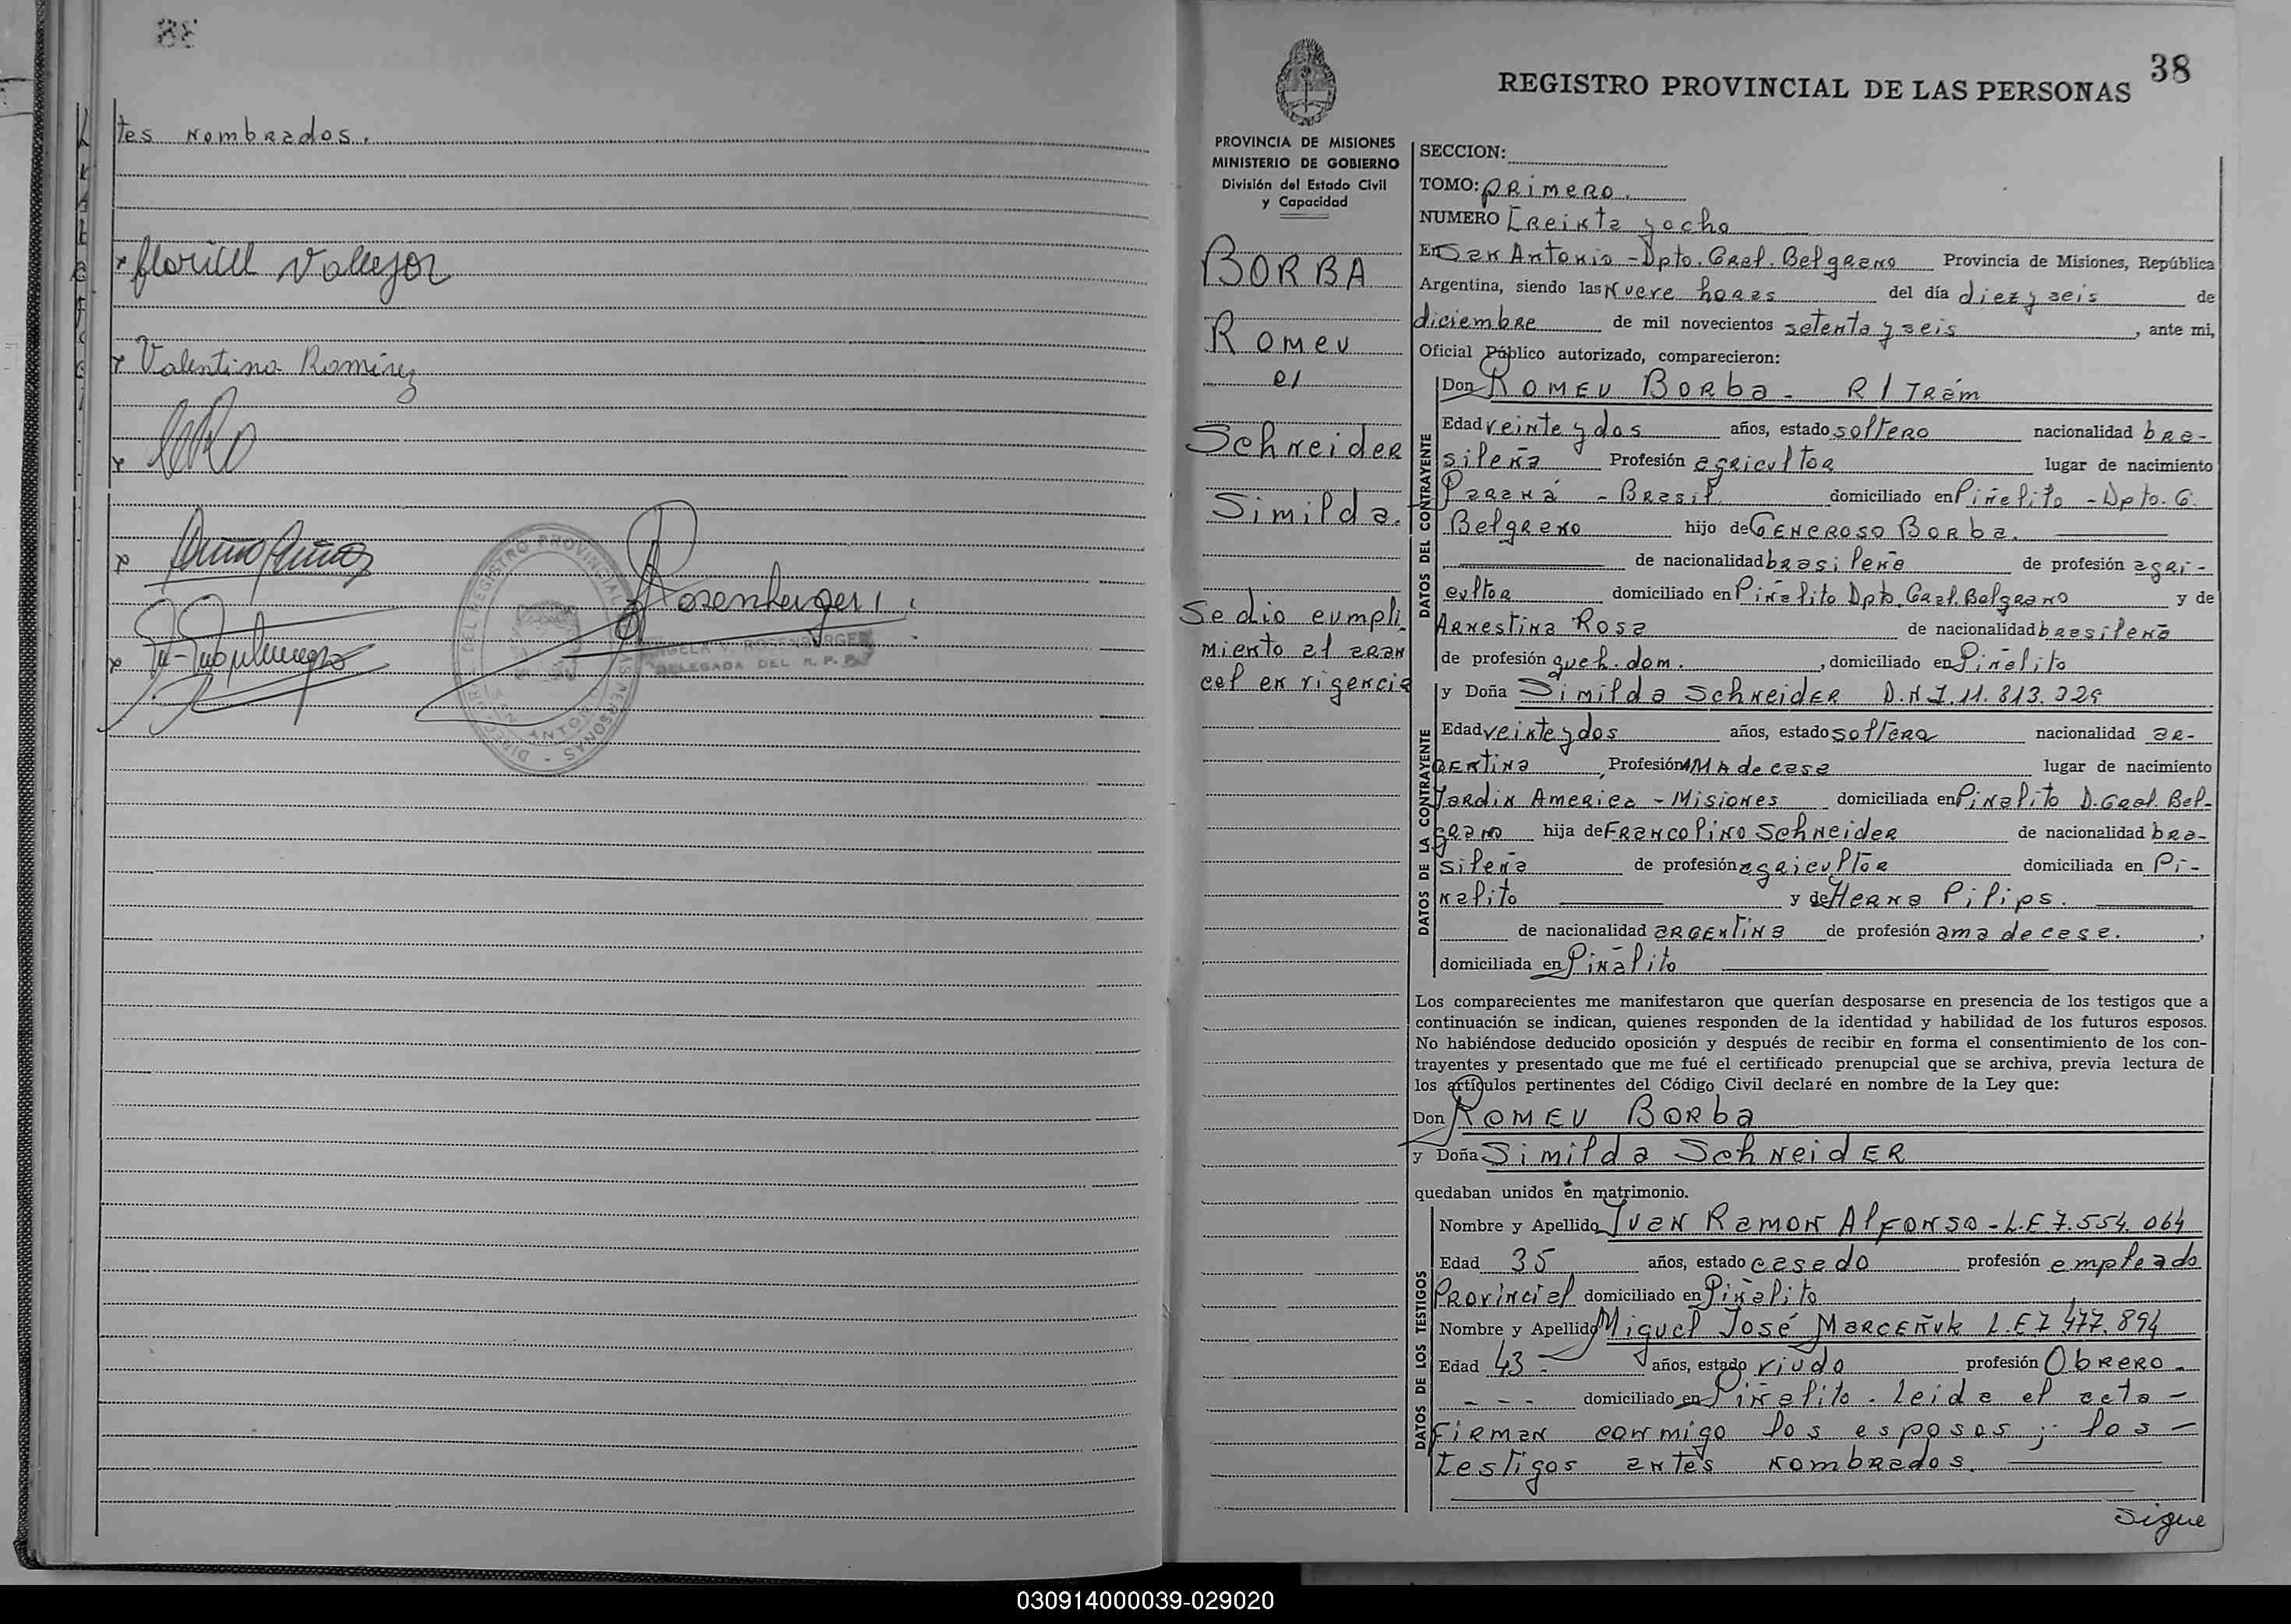 38
tes nombrados.
Valentina Ramirez
Rosenberger
ANGELA V. ROSENBERGER
DELEGADA DEL R. P. P.
38
REGISTRO PROVINCIAL DE LAS PERSONAS
PROVINCIA DE MISIONES
MINISTERIO DE GOBIERNO
División del Estado Civil
y Capacidad
BORBA
Romeu
c/
Schneider
Similda.
Se dio cumpli
miento al aran
cel en vigencia
SECCION:
TOMO: primero.
NUMERO Treinta y ocho
En San Antonio - Dpto. Gral. Belgrano Provincia de Misiones, República
Argentina, siendo las nueve horas del día diez y seis de
diciembre de mil novecientos setenta y seis, ante mi,
Oficial Público autorizado, comparecieron:
DATOS DEL CONTRAYENTE
Don Romeu Borba - R/Trám
Edad veinte y dos años, estado soltero nacionalidad bra-
sileña Profesión agricultor lugar de nacimiento
Paraná - Brasil domiciliado en Piñalito - Dpto. G.
Belgrano hijo de Generoso Borba.
de nacionalidad brasileña de profesión agri-
cultor domiciliado en Piñalito Dpto. Gral. Belgrano y de
Arnestina Rosa de nacionalidad brasileña
de profesión queh. dom., domiciliado en Piñalito
DATOS DE LA CONTRAYENTE
y Doña Similda Schneider D.N.I. 11.813.229
Edad veinte y dos años, estado soltera nacionalidad ar-
gentina Profesión Ama de casa lugar de nacimiento
Jardin America - Misiones domiciliada en Piñalito D. Gral. Bel-
grano hija de Francolino Schneider de nacionalidad bra-
sileña de profesión agricultor domiciliada en Pi-
ñalito y de Herna Pilips.
de nacionalidad argentina de profesión ama de casa.,
domiciliada en Piñalito
Los comparecientes me manifestaron que querían desposarse en presencia de los testigos que a
continuación se indican, quienes responden de la identidad y habilidad de los futuros esposos.
No habiéndose deducido oposición y después de recibir en forma el consentimiento de los con-
trayentes y presentado que me fué el certificado prenupcial que se archiva, previa lectura de
los artículos pertinentes del Código Civil declaré en nombre de la Ley que:
Don Romeu Borba
y Doña Similda Schneider
quedaban unidos en matrimonio.
DATOS DE LOS TESTIGOS
Nombre y Apellido Juan Ramon Alfonso - L.E 7.554.064
Edad 35 años, estado casado profesión empleado
Provincial domiciliado en Piñalito
Nombre y Apellido Miguel José Marceñuk L.E 7.477.894
Edad 43 - años, estado viudo profesión Obrero -
- - - domiciliado en Piñalito. Leida el acta -
Firman conmigo los esposos y los -
testigos antes nombrados.
Sigue
030914000039-029020